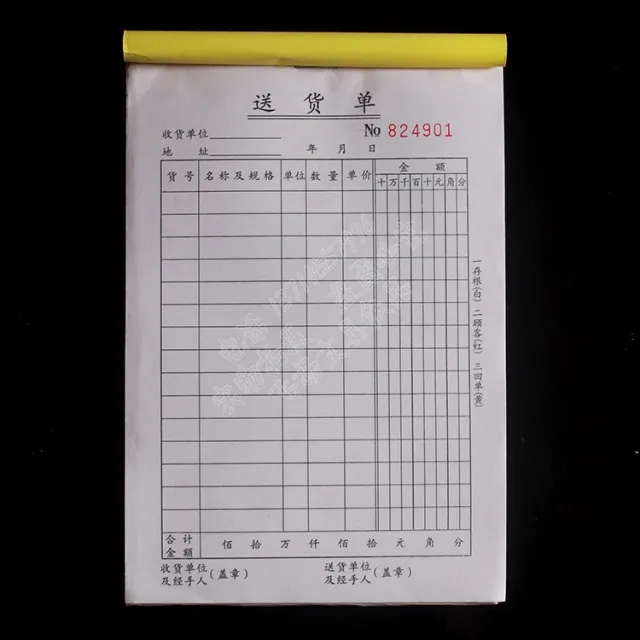 送货单
收货单位
No 824901
地址 年 月 日
货号 名称及规格 单位 数量 单价 金额
十 万 千 百 十 元 角 分
一存根(白) 二顾客(红) 三回单(黄)
合计金额 佰 拾 万 仟 佰 拾 元 角 分
收货单位及经手人(盖章) 送货单位及经手人(盖章)